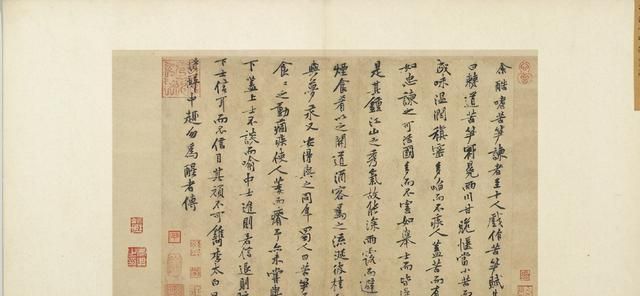 余酷嗜苦筍諫者至十人戲作苦筍賦
曰僰道苦筍冠冕兩川甘脆愜當小苦而
成味溫潤縝密多啗而不疾人蓋苦而有
如忠諫之可活國多而不害如舉士而皆
是其鍾江山之秀氣故能深雨露而避
煙食肴以之開道酒客為之流涎彼桂
與夢汞又安得與之同年蜀人曰苦筍
食〻之動痼疾使人萎而瘠予亦未嘗與
下蓋上士不談而喻中士進則若信退則
下士信耳而不信目其頑不可鐫李太白曰
得醉中趣勿為醒者傳